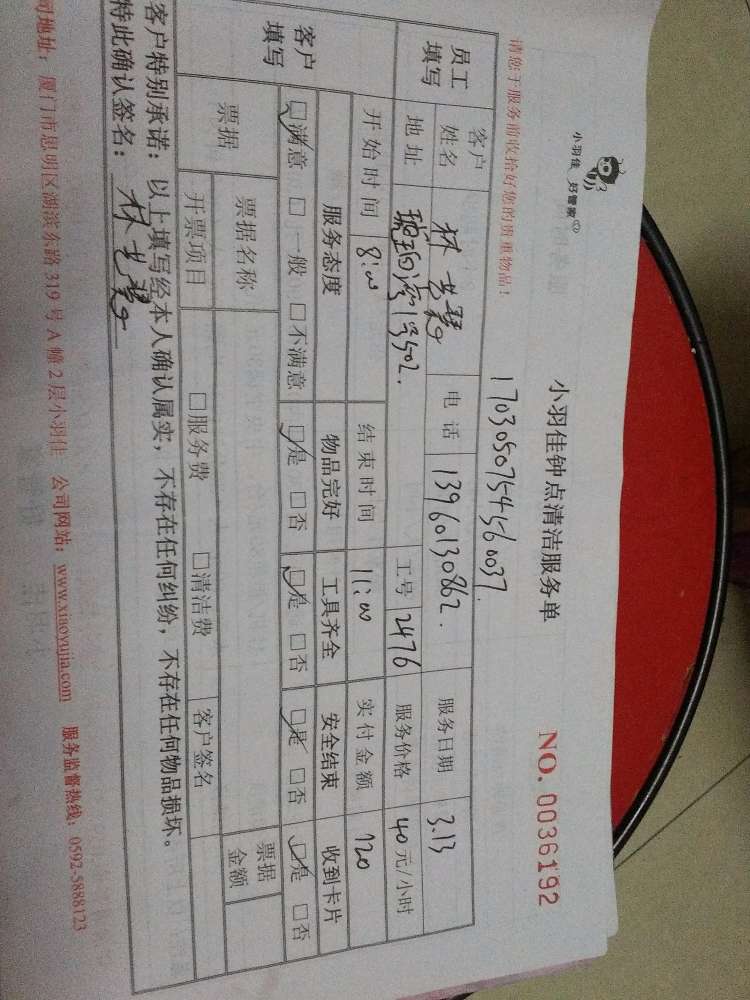 小羽佳 好管家
小羽佳钟点清洁服务单
NO. 0036192
请您于服务前收拾好您的贵重物品！
1703050754560037.
员工填写
客户姓名 林艺 电话 13960130862. 服务日期 3.13
地址 湾1号502. 工号 2476 服务价格 40元/小时
开始时间 8:00 结束时间 11:00 实付金额 120
客户填写
服务态度 物品完好 工具齐全 安全结束 收到卡片
☑满意 □一般 □不满意 ☑是 □否 ☑是 □否 ☑是 □否 ☑是 □否
票据 票据名称 票据金额
开票项目 □服务费 □清洁费 客户签名
客户特别承诺：以上填写经本人确认属实，不存在任何纠纷，不存在任何物品损坏。
特此确认签名：林艺
司地址：厦门市思明区湖滨东路319号A幢2层小羽佳 公司网站：www.xiaoyujia.com 服务监督热线：0592-5888123